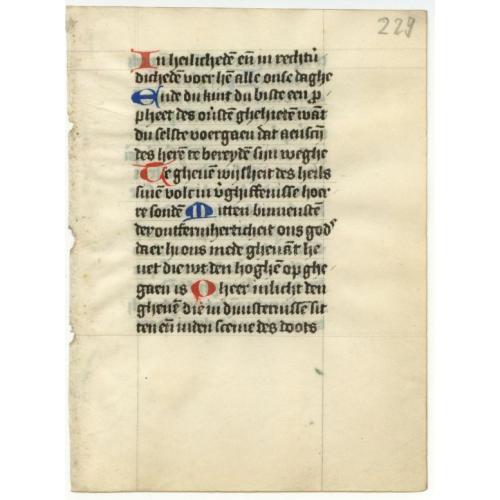 229
In heilichedē eñ in rechtū
dichedē voer hē alle onse daghe
Ende du kint du biste een p
pheet des ouſten ghehietē wāt
du selste voergaen dat aenscij
des herē te bereydē sijn weghe
Te gheuen wijsheit des heils
sinē volc in v̄ghiffenisse hoer
re sondē Mitten binnenstē
der ontfermherticheit ons gods
daer hi ons mede gheuāt he
uet die wt den hoghē op ghe
gaen is O heer inlicht den
ghenē die in duusternisse sit
ten eñ inden sceme des doots